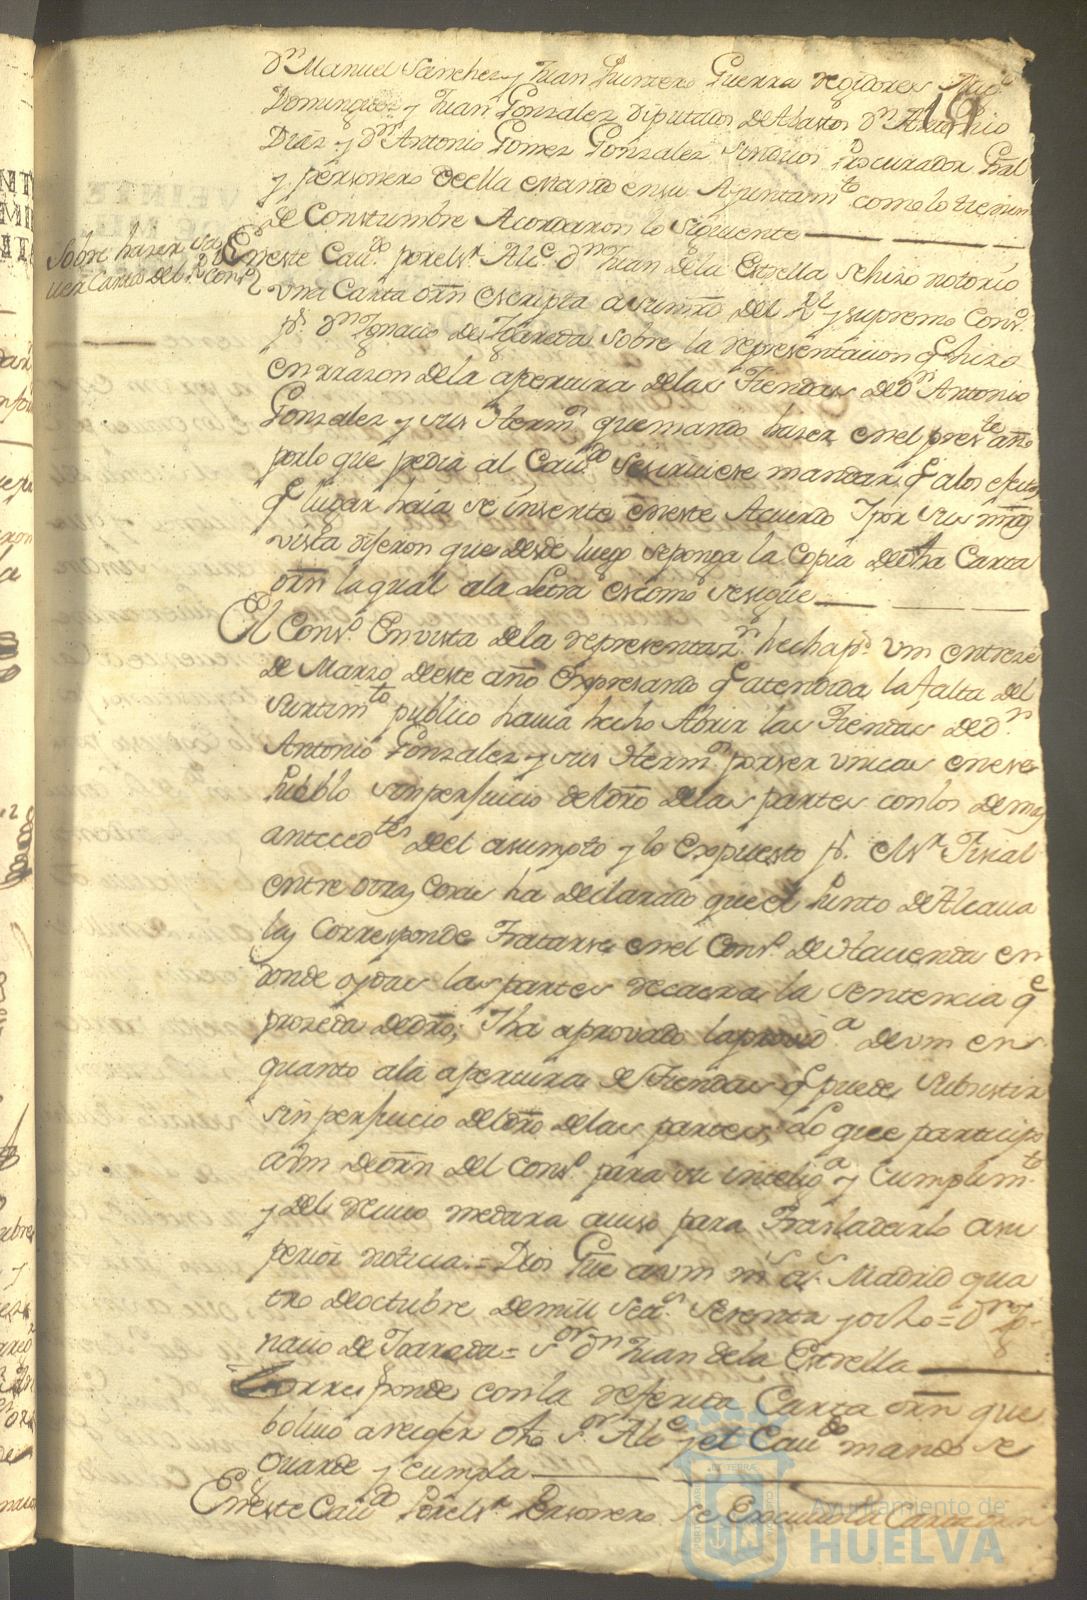 Dn Manuel Sanchez y Juan Quintero Guerra Regidores
Dominguez y Juan Gonzalez Diputados de Abastos Dn Antonio
19
Diaz y Dn Antonio Gomez Gonzalez Sindicos Procurador Gral
y personero de ella estando en su Ayuntamto como lo tienen
de Constumbre Acordaron lo Siguiente
Sobre hazer
una Carta del Rl Consº
En este Cavdo por el Sr Alce Dn Juan de la Estrella se hizo notorio
una Carta orn escripta a su mrd del Rl y supremo Consº
pr Dn Ignacio de Igareda sobre la representacion q hizo
en rrazon de la apertura de las Tiendas de Dn Antonio
Gonzalez y sus Hermos que mando hazer en el preste año
por lo que pedia al Cavdo se sirviese mandar q a los efectos
q lugar haia se inserte en este Acuerdo Y por sus mrds
vista dijeron que desde luego se ponga la Copia de dha Carta
orn la qual a la Letra es como se sigue
El Consº En vista de la representazn hecha pr vm en treze
de Marzo de este año Expresando q atendida la falta del
surtimto publico havia hecho Abrir las Tiendas de Dn
Antonio Gonzalez y sus Hermos por ser unicas en ese
Pueblo sin perjuicio del dro de las partes con los demas
antecedtes del asumpto y lo Expuesto pr el Sr Fiscal
entre otras Cosas ha declarado que el Punto de Alcava
las Corresponde Tratarse en el Consº de Hacienda en
donde oydas las partes recaera la sentencia q
proceda de dro; Y ha aprovado la provida de vm en
quanto a la apertura de Tiendas q puede Subsistir
sin perjuicio del dro de las partes; Lo que participo
a vm de orn del Consº para su inteliga y Cumplimto
y del recivo me dara aviso para Trasladarlo a su
perior noticia = Dios Gue a vm ms as Madrid qua
tro de octubre de mill Setes Sesenta y ocho = Dn Ig-
nacio de Igareda = Sor Dn Juan de la Estrella
Corresponde con la referida Carta orn que
bolvio a recojer dho Sor Alce y el Cavdo mando se
Guarde y cumpla
En este Cavdo Por el Sr Personero se
Ayuntamiento de
HUELVA